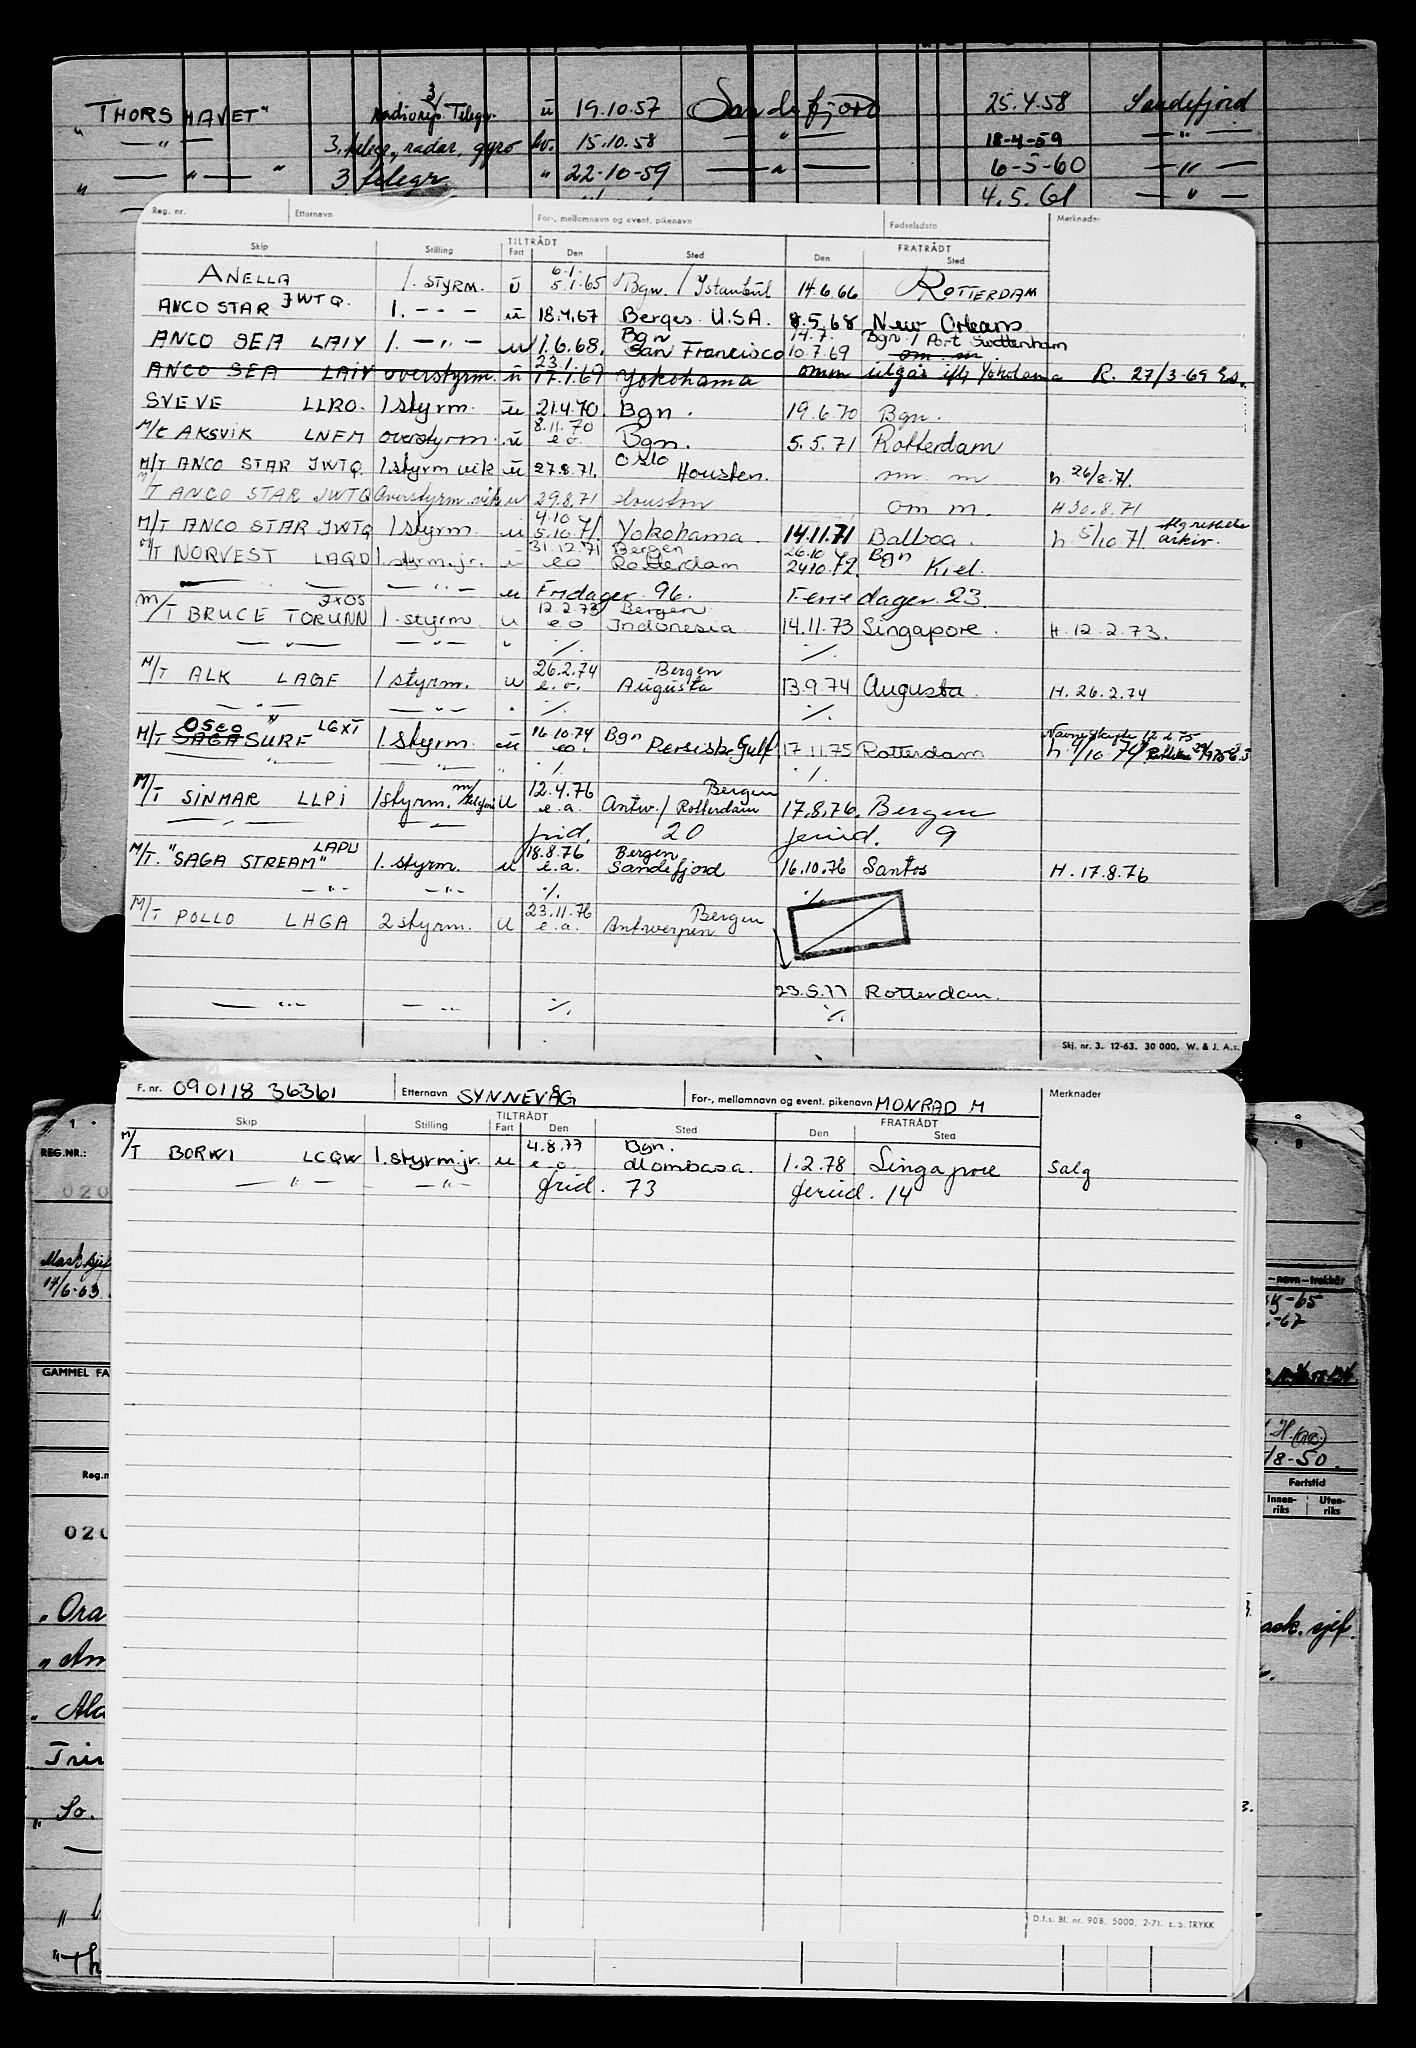 "THORSHAVET" radioriß. 3/ Telegr. ü 19.10.57 Sandefjord 25.4.58 Sandefjord
— " — 3. telegr., radar, gyro 15.10.58 — " — 18-4-59 — " —
" — " — " 3 telegr " 22-10-59 — " — 6-5-60 — " —
4.5.61 — " —
Reg. nr. Etternavn For-, mellomnavn og event. pikenavn Fødselsdato Merknader
TILTRÅDT FRATRÅDT
Skip Stilling Fart Den Sted Den Sted
ANELLA 1. STYRM. ü 6.1. 5.1.65 Bgn. / Istanbul 14.6.66 ROTTERDAM
ANCO STAR JWTQ. 1. - " - ü 18.4.67 Berges. U.S.A. 8.5.68 New Orleans
ANCO SEA LAIY 1. — " — u 1.6.68. Bgn San Francisco 14.7. 10.7.69 Bgn. / Port Swettenham om. m.
ANCO SEA LAIY overstyrm. ü 23.1. 17.1.69 Yokohama omm utgår ifb Yokohama R. 27/3-69 Es.
SVEVE LLRO. 1 styrm. ü 21.4.70. Bgn. 19.6.70 Bgn.
M/t AKSVIK LNFM overstyrm. ü 8.11.70 e o. Bgn. 5.5.71 Rotterdam
M/T ANCO STAR JWTQ 1 styrm vik ü 27.8.71. Oslo Housten. om. m h. 26/8.71.
M/T ANCO STAR JWTQ Overstyrm. vik u 29.8.71 Houston om m. H 30.8.71
M/T ANCO STAR JWTQ 1 styrm. u 4.10 5.10.71. Yokohama. 14.11.71 Balboa. h. 5/10 71. arkiv.
M/T NORVEST LAQD 1. styrm. jr. u 31.12.71 e o Bergen Rotterdam 26.10 24.10.72. Bgn Kiel.
— — — " — u Fridager. 96. Feriedager. 23.
M/T BRUCE TORUNN JXOS 1. styrm. u 12.2.73 e o Bergen Indonesia 14.11.73 Singapore. H. 12.2.73.
— " — — " — " ./. ./.
M/T ALK LAGF 1 styrm. u 26.2.74 e. o. Bergen Augusta 13.9.74 Augusta. H. 26.2.74
— " — — " — " ./. ./.
M/T OSCO SAGA SURF LGXT 1 styrm. ü 16.10.74 eo. Bgn Persiske Gulf 17.11.75 Rotterdam Navneskifte 12.2.75 h. 9/10.74
" " " ./. ./.
M/T SINMAR LLPI 1 styrm. m/ u 12.4.76 e. a. Bergen Antw. / Rotterdam 17.8.76. Bergen
— " — — " — frid. 20 feried. 9
M/T. "SAGA STREAM" LAPU 1. styrm. u 18.8.76 e.a. Bergen Sandefjord 16.10.76 Santos H. 17.8.76
— " — — " — ./. ./.
M/T POLLO LHGA 2 styrm. u 23.11.76 e.a. Bergen Antwerpen
23.5.77 Rotterdam.
— " — — " — ./. ./.
Skj. nr. 3. 12-63. 30 000. W. & J. A.s.
F. nr. 090118 36361 Etternavn SYNNEVÅG For-, mellomnavn og event. pikenavn MONRAD M Merknader
TILTRÅDT FRATRÅDT
Skip Stilling Fart Den Sted Den Sted
M/T BORWI LCQW 1. styrm. jr. u 4.8.77 e. o. Bgn. Mombasa. 1.2.78 Singapore Salg
— " — — " — frid. 73 feried. 14
D.f.s. Bl. nr. 908. 5000. 2-71. E. S. TRYKK
REG.NR.:
020
17/6-63.
GAMMEL FA
Reg.n
020
" Ora
" Am
" So.
"Th
-navn-trekkår
-65
-67
18-50.
Fartstid
Innen-riks Uten-riks
ask. sjef.